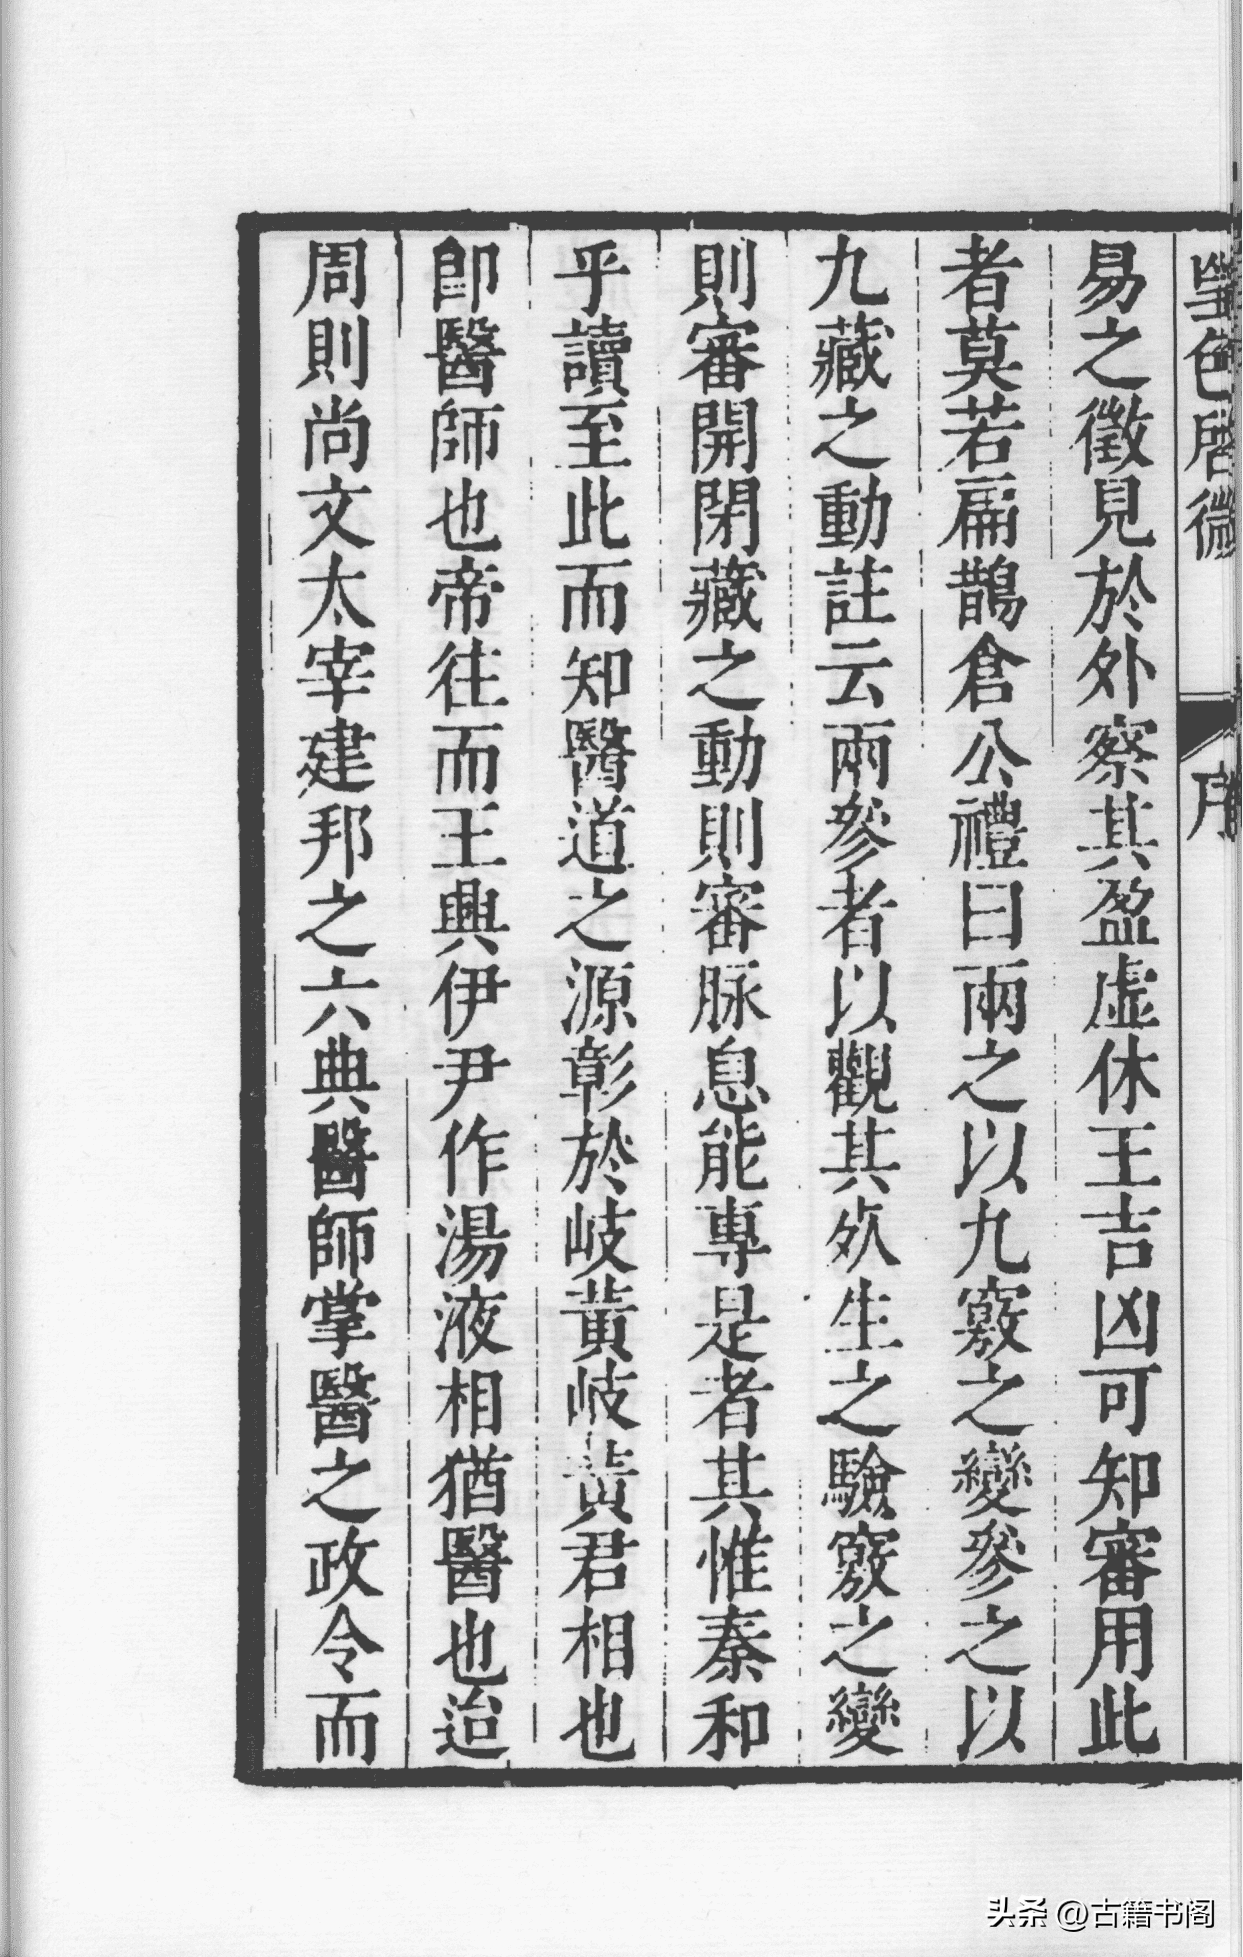 望色啓微 序
易之徵見於外察其盈虛休王吉凶可知審用此
者莫若扁鵲倉公禮曰兩之以九竅之變參之以
九藏之動註云兩參者以觀其死生之驗竅之變
則審開閉藏之動則審脉息能專是者其惟秦和
乎讀至此而知醫道之源彰於岐黃岐黃君相也
卽醫師也帝往而王興伊尹作湯液相猶醫也迨
周則尚文太宰建邦之六典醫師掌醫之政令而
头条 @古籍书阁